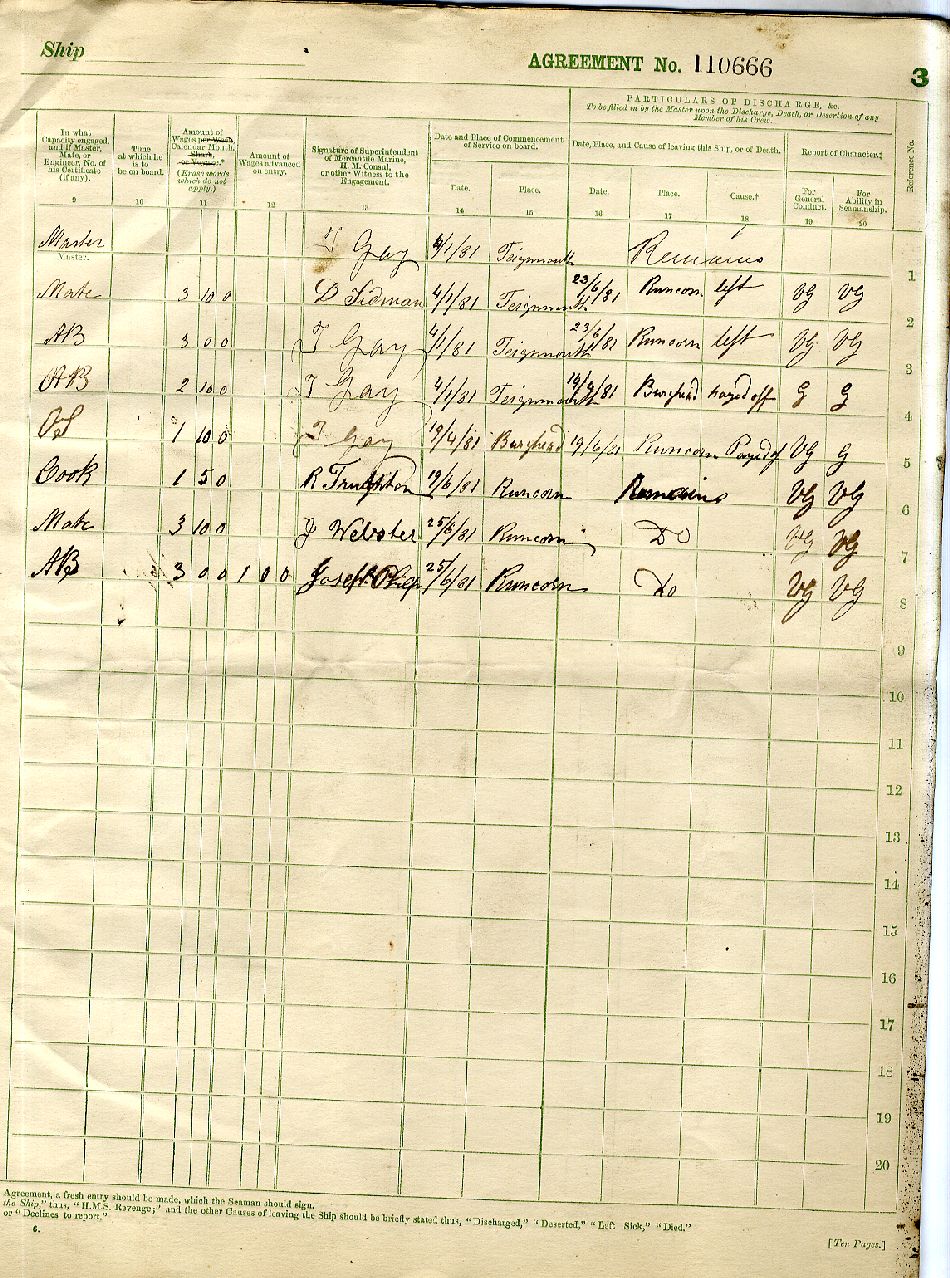 Ship
AGREEMENT No. 110666
3
PARTICULARS OF DISCHARGE, &c.
To be filled in by the Master upon the Discharge, Death, or Desertion of any
Member of his Crew.
In what Capacity engaged, and if Master, Mate, or Engineer, No. of his Certificate (if any).
Time at which he is to be on board.
Amount of Wages per Week, Calendar Month, Share, or Voyage.* (Erase words which do not apply.)
Amount of Wages advanced on entry.
Signature of Superintendent of Mercantile Marine, H. M. Consul, or other Witness to the Engagement.
Date and Place of Commencement of Service on board.
Date, Place, and Cause of leaving this Ship, or of Death.
Report of Character.‡
Reference No.
Date. Place. Date. Place. Cause.† For General Conduct. For Ability in Seamanship.
9 10 11 12 13 14 15 16 17 18 19 20
Master Gay /1/81 Teignmouth Remains
Master. 1
Mate 3 10 0 D Tidman 4/1/81 Teignmouth 23/6/81 Runcorn left VG VG 2
AB 3 0 0 T Gay 4/1/81 Teignmouth 23/6/81 Runcorn left VG VG 3
AB 2 10 0 T Gay 4/1/81 Teignmouth /81 Burghead Payed off G G 4
OS 1 10 0 T Gay 19/4/81 Burghead 19/6/81 Runcorn Payed of VG G 5
Cook 1 5 0 R Runcorn Remains VG VG 6
Mate 3 10 0 J Webster 25/6/81 Runcorn Do VG VG 7
AB 3 0 0 1 0 0 Joseph 25/6/81 Runcorn Do VG VG 8
9
10
11
12
13
14
15
16
17
18
19
20
Agreement, a fresh entry should be made, which the Seaman should sign.
the Ship," thus, "H.M.S. Revenge;" and the other Causes of leaving the Ship should be briefly stated thus, "Discharged," "Deserted," "Left Sick," "Died."
or "Declines to report."
6.
[Ten Pages.]